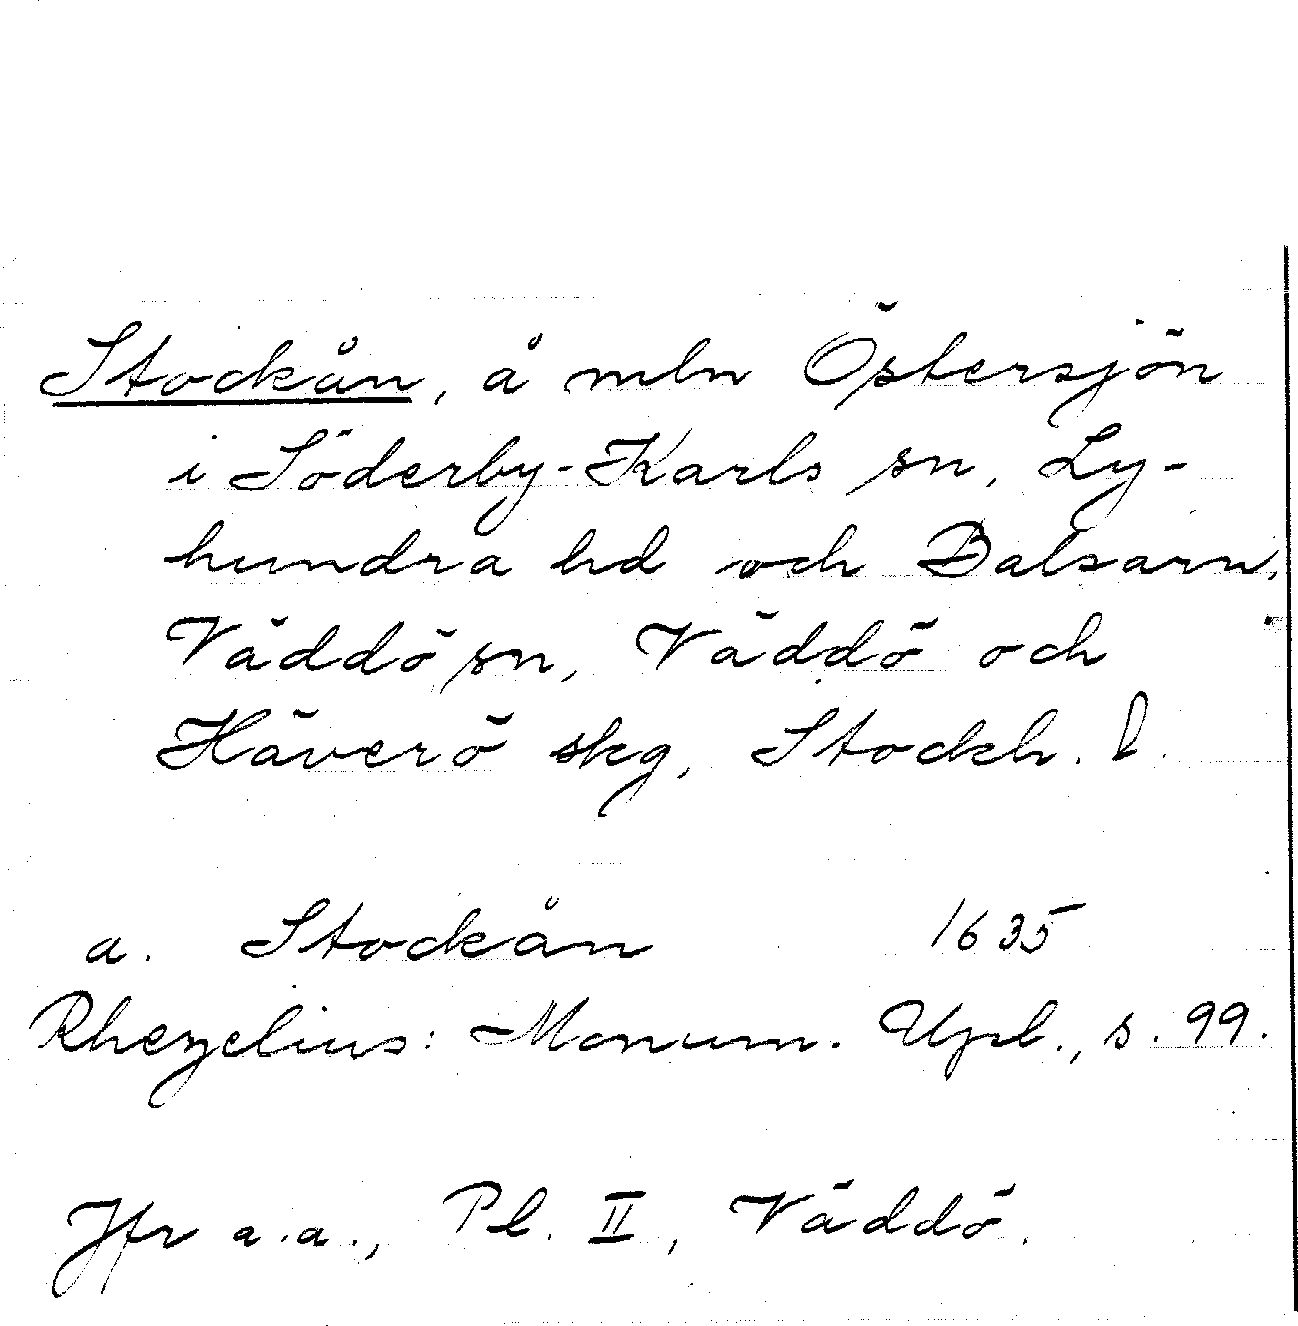 Stockån, å mln Östersjön
i Söderby-Karls sn, Ly-
hundra hd och Balsarn,
Väddö sn, Väddö och
Häverö skg, Stockh. l.
a. Stockån 1635
Rhezelius: Monum. Upl., s. 99.
Jfr a.a., Pl. II, Väddö.